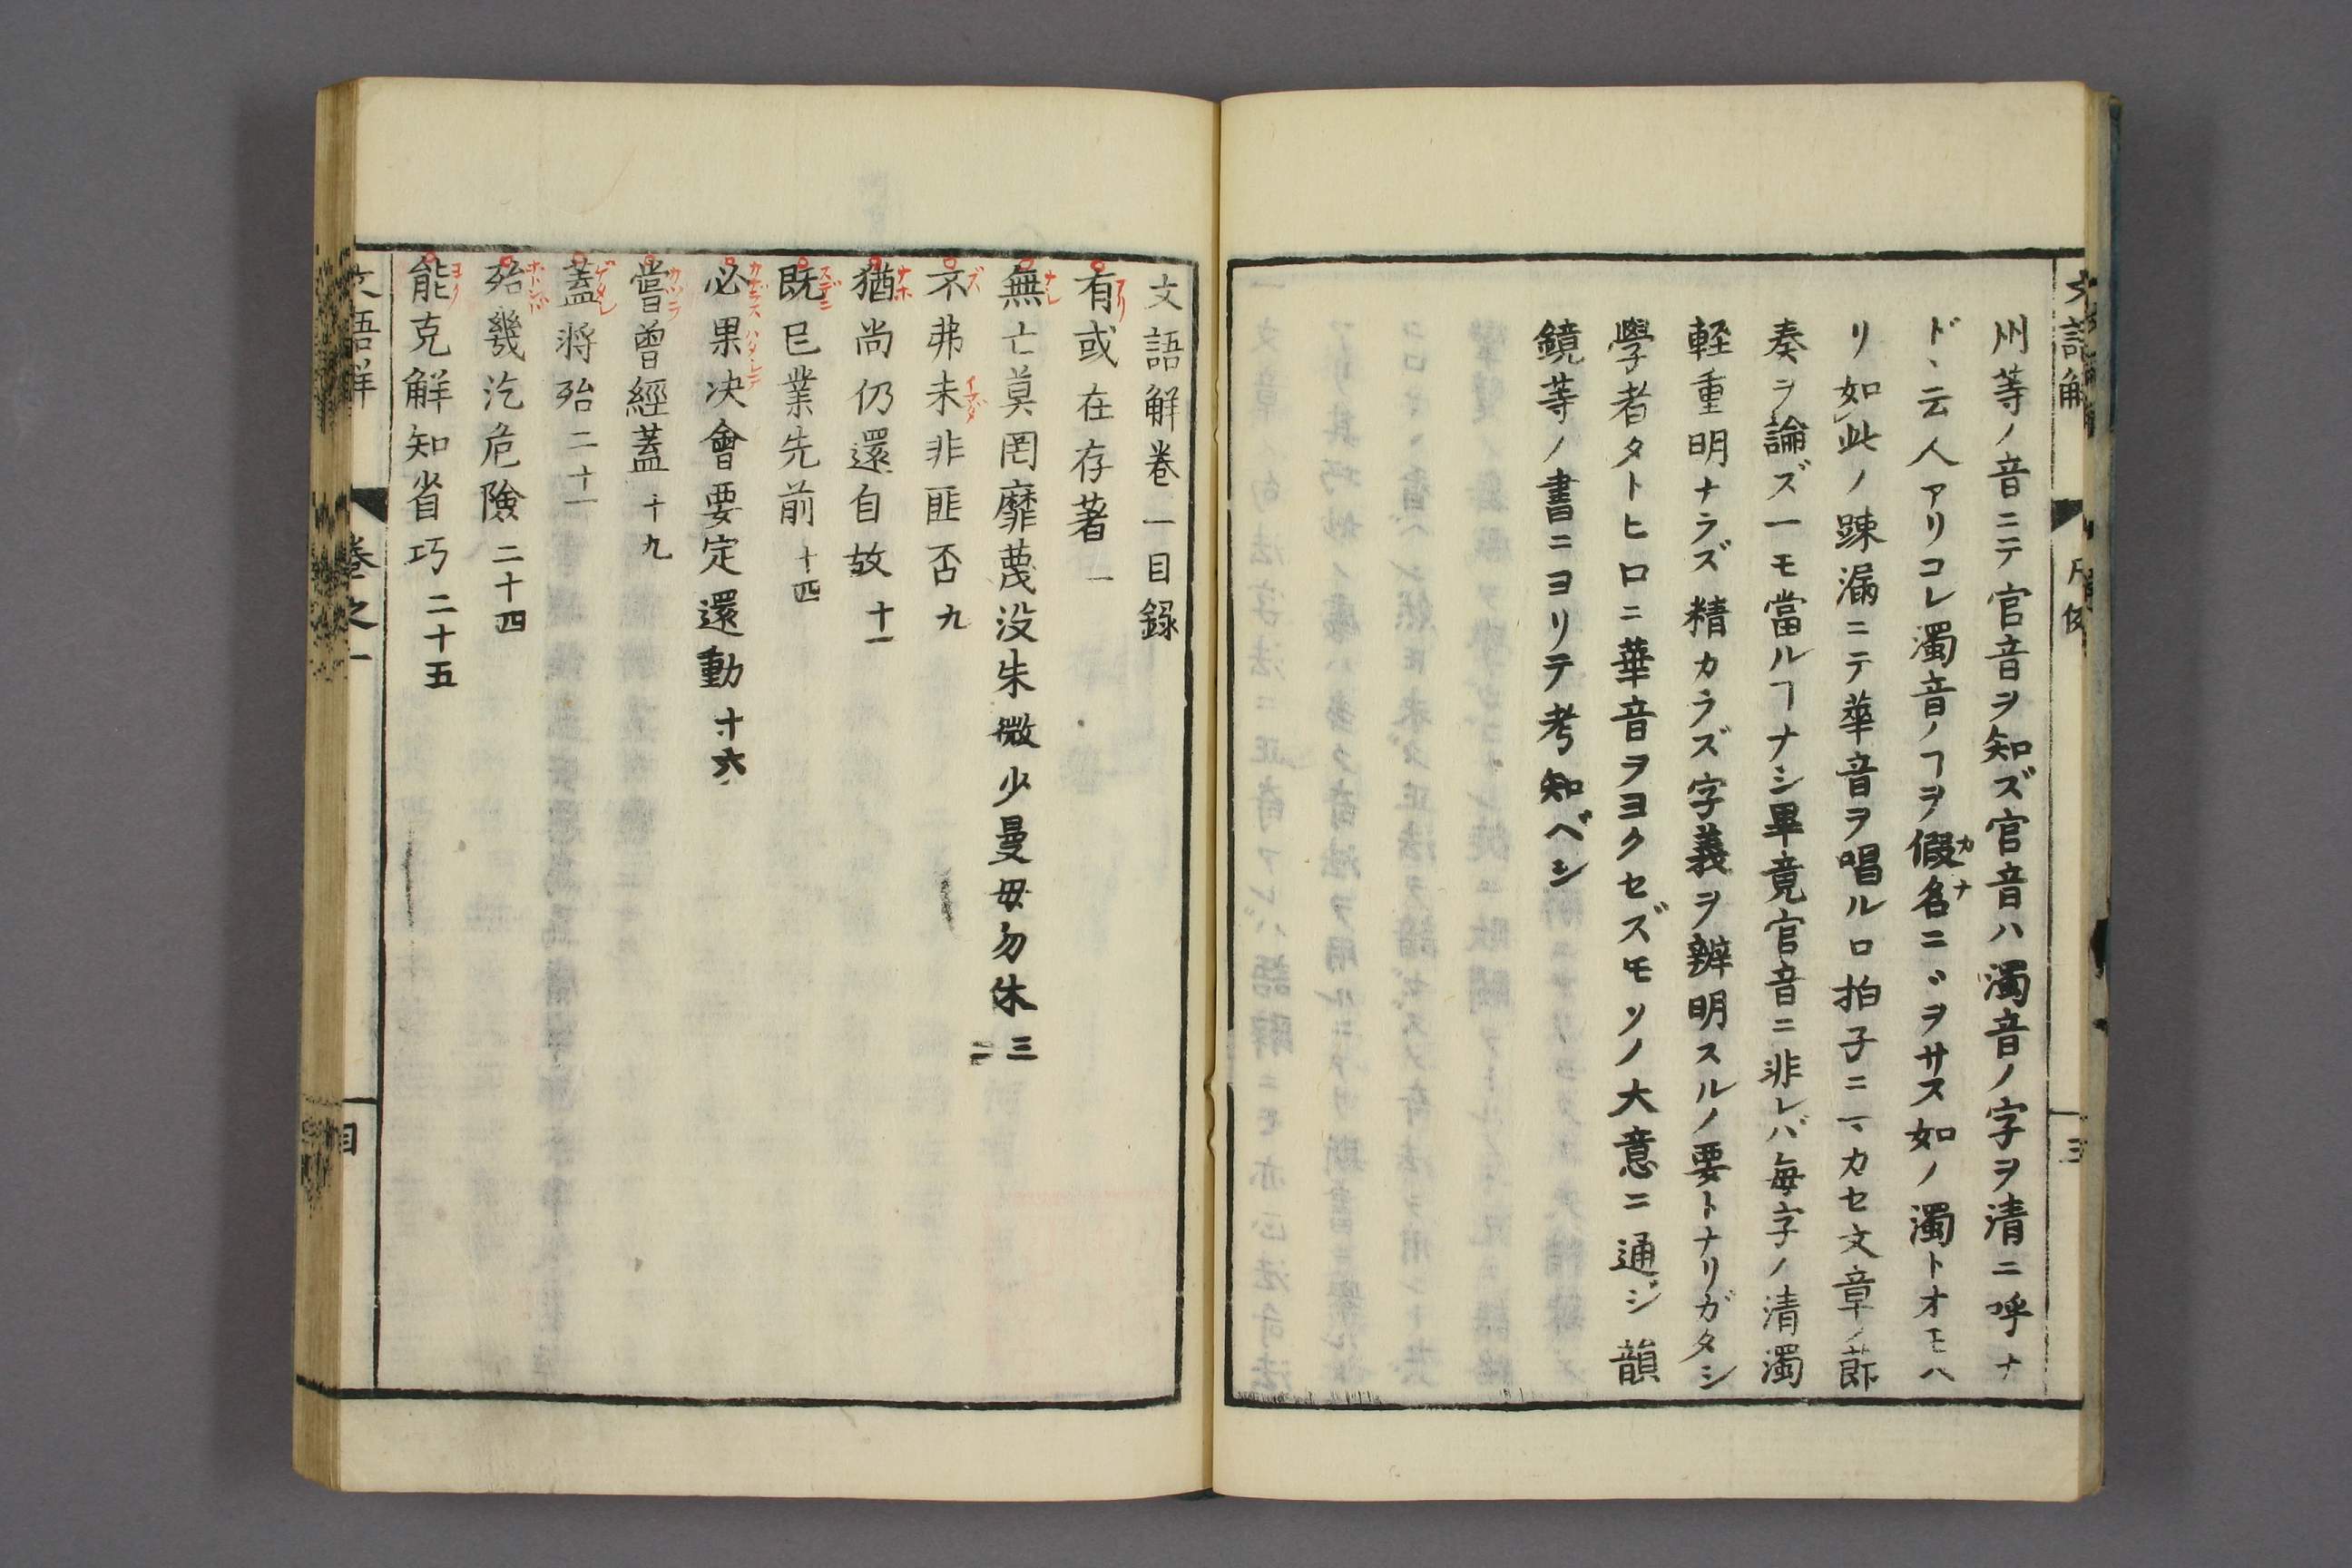 州等ノ音ニテ官音ヲ知ズ官音ハ濁音ノ字ヲ清ニ呼ナ
ド、云人アリコレ濁音ノヿヲ假名ニ゛ヲサス如ノ濁トオモヘ
リ如此ノ踈漏ニテ華音ヲ唱ル口拍子ニマカセ文章ノ莭
奏ヲ論ズ一モ當ルヿナシ畢竟官音ニ非レバ毎字ノ清濁
軽重明ナラズ精カラズ字義ヲ辨明スルノ要トナリガタシ
學者タトヒ口ニ華音ヲヨクセズモソノ大意ニ通ジ韻
鏡等ノ書ニヨリテ考知ベシ
文語解卷一目録
有或在存著 一
無亡莫罔靡蔑没朱微少曼毋勿休 三
二
不弗未非匪否 九
猶尚仍還自故 十一
既已業先前 十四
必果决會要定還動 十六
嘗曽經蓋 十九
蓋將殆 二十一
殆幾汔危險 二十四
能克解知省巧 二十五
卷之一
目